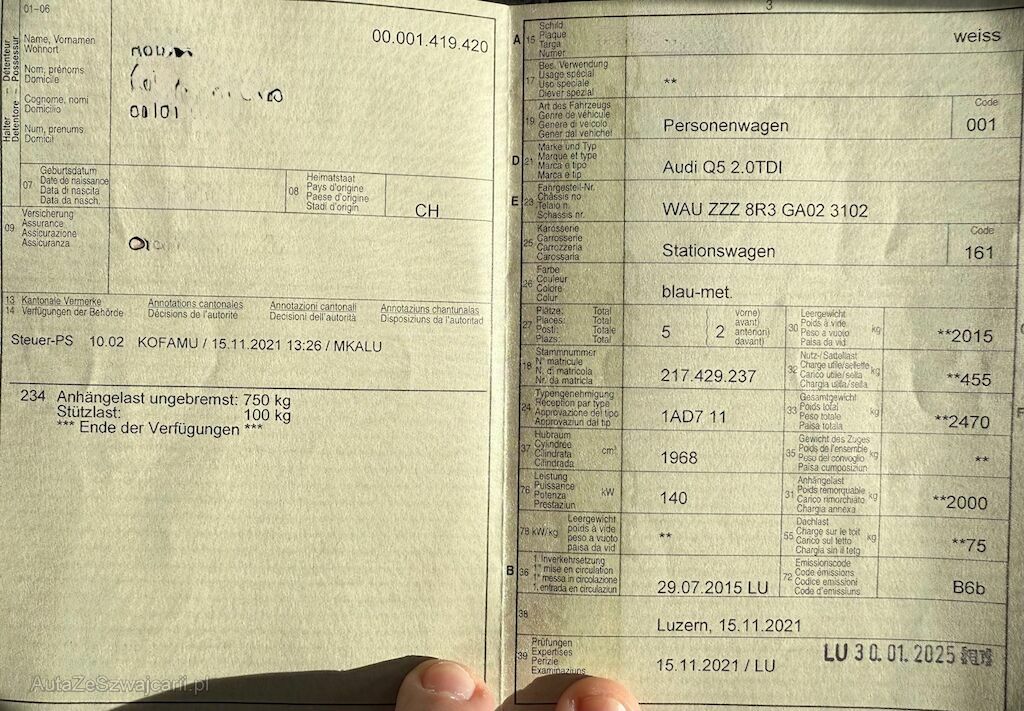 01-06
Halter
Détenteur
Detentore
Possessur
Name, Vornamen
Wohnort
Nom, prénoms
Domicile
Cognome, nomi
Domicilio
Num, prenums
Domicil
00.001.419.420
07
Geburtsdatum
Date de naissance
Data di nascita
Data da nasch.
08
Heimatstaat
Pays d'origine
Paese d'origine
Stadi d'origin
CH
09
Versicherung
Assurance
Assicurazione
Assicuranza
13 Kantonale Vermerke
14 Verfügungen der Behörde
Annotations cantonales
Décisions de l'autorité
Annotazioni cantonali
Decisioni dell'autorità
Annotaziuns chantunalas
Disposiziuns da l'autoritad
Steuer-PS 10.02 KOFAMU / 15.11.2021 13:26 / MKALU
234 Anhängelast ungebremst: 750 kg
Stützlast: 100 kg
*** Ende der Verfügungen ***
AutaZeSzwajcarii.pl
3
A 15
Schild
Plaque
Targa
Numer
weiss
17
Bes. Verwendung
Usage spécial
Uso speciale
Diever spezial
**
19
Art des Fahrzeugs
Genre de véhicule
Genere di veicolo
Gener dal vehichel
Personenwagen
Code
001
D 21
Marke und Typ
Marque et type
Marca e tipo
Marca e tip
Audi Q5 2.0TDI
E 23
Fahrgestell-Nr.
Châssis no
Telaio n.
Schassis nr.
WAU ZZZ 8R3 GA02 3102
25
Karosserie
Carrosserie
Carrozzeria
Carossaria
Stationswagen
Code
161
26
Farbe
Couleur
Colore
Colur
blau-met.
27
Plätze: Total
Places: Total
Posti: Totale
Plazs: Total
5 ( 2
vorne)
avant)
anteriori)
davant)
30
Leergewicht
Poids à vide
Peso a vuoto
Paisa da vid
kg
**2015
18
Stammnummer
N° matricule
N. di matricola
Nr. da matricla
217.429.237
32
Nutz-/Sattellast
Charge utile/sellette
Carico utile/sella
Chargia utila/sella
kg
**455
24
Typengenehmigung
Réception par type
Approvazione del tipo
Approvaziun dal tip
1AD7 11
33
Gesamtgewicht
Poids total
Peso totale
Paisa totala
kg
**2470
37
Hubraum
Cylindrée
Cilindrata
Cilindrada
cm³
1968
35
Gewicht des Zuges
Poids de l'ensemble
Peso del convoglio
Paisa cumposiziun
kg
**
76
Leistung
Puissance
Potenza
Prestaziun
kW
140
31
Anhängelast
Poids remorquable
Carico rimorchiato
Chargia annexa
kg
**2000
78 kW/kg
Leergewicht
poids à vide
peso a vuoto
paisa da vid
**
55
Dachlast
Charge sur le toit
Carico sul tetto
Chargia sin il tetg
kg
**75
B 36
1. Inverkehrsetzung
1re mise en circulation
1a messa in circolazione
1. entrada en circulaziun
29.07.2015 LU
72
Emissionscode
Code émissions
Codice emissioni
Code d'emissiuns
B6b
38
Luzern, 15.11.2021
39
Prüfungen
Expertises
Perizie
Examinaziuns
15.11.2021 / LU
LU 30.01.2025